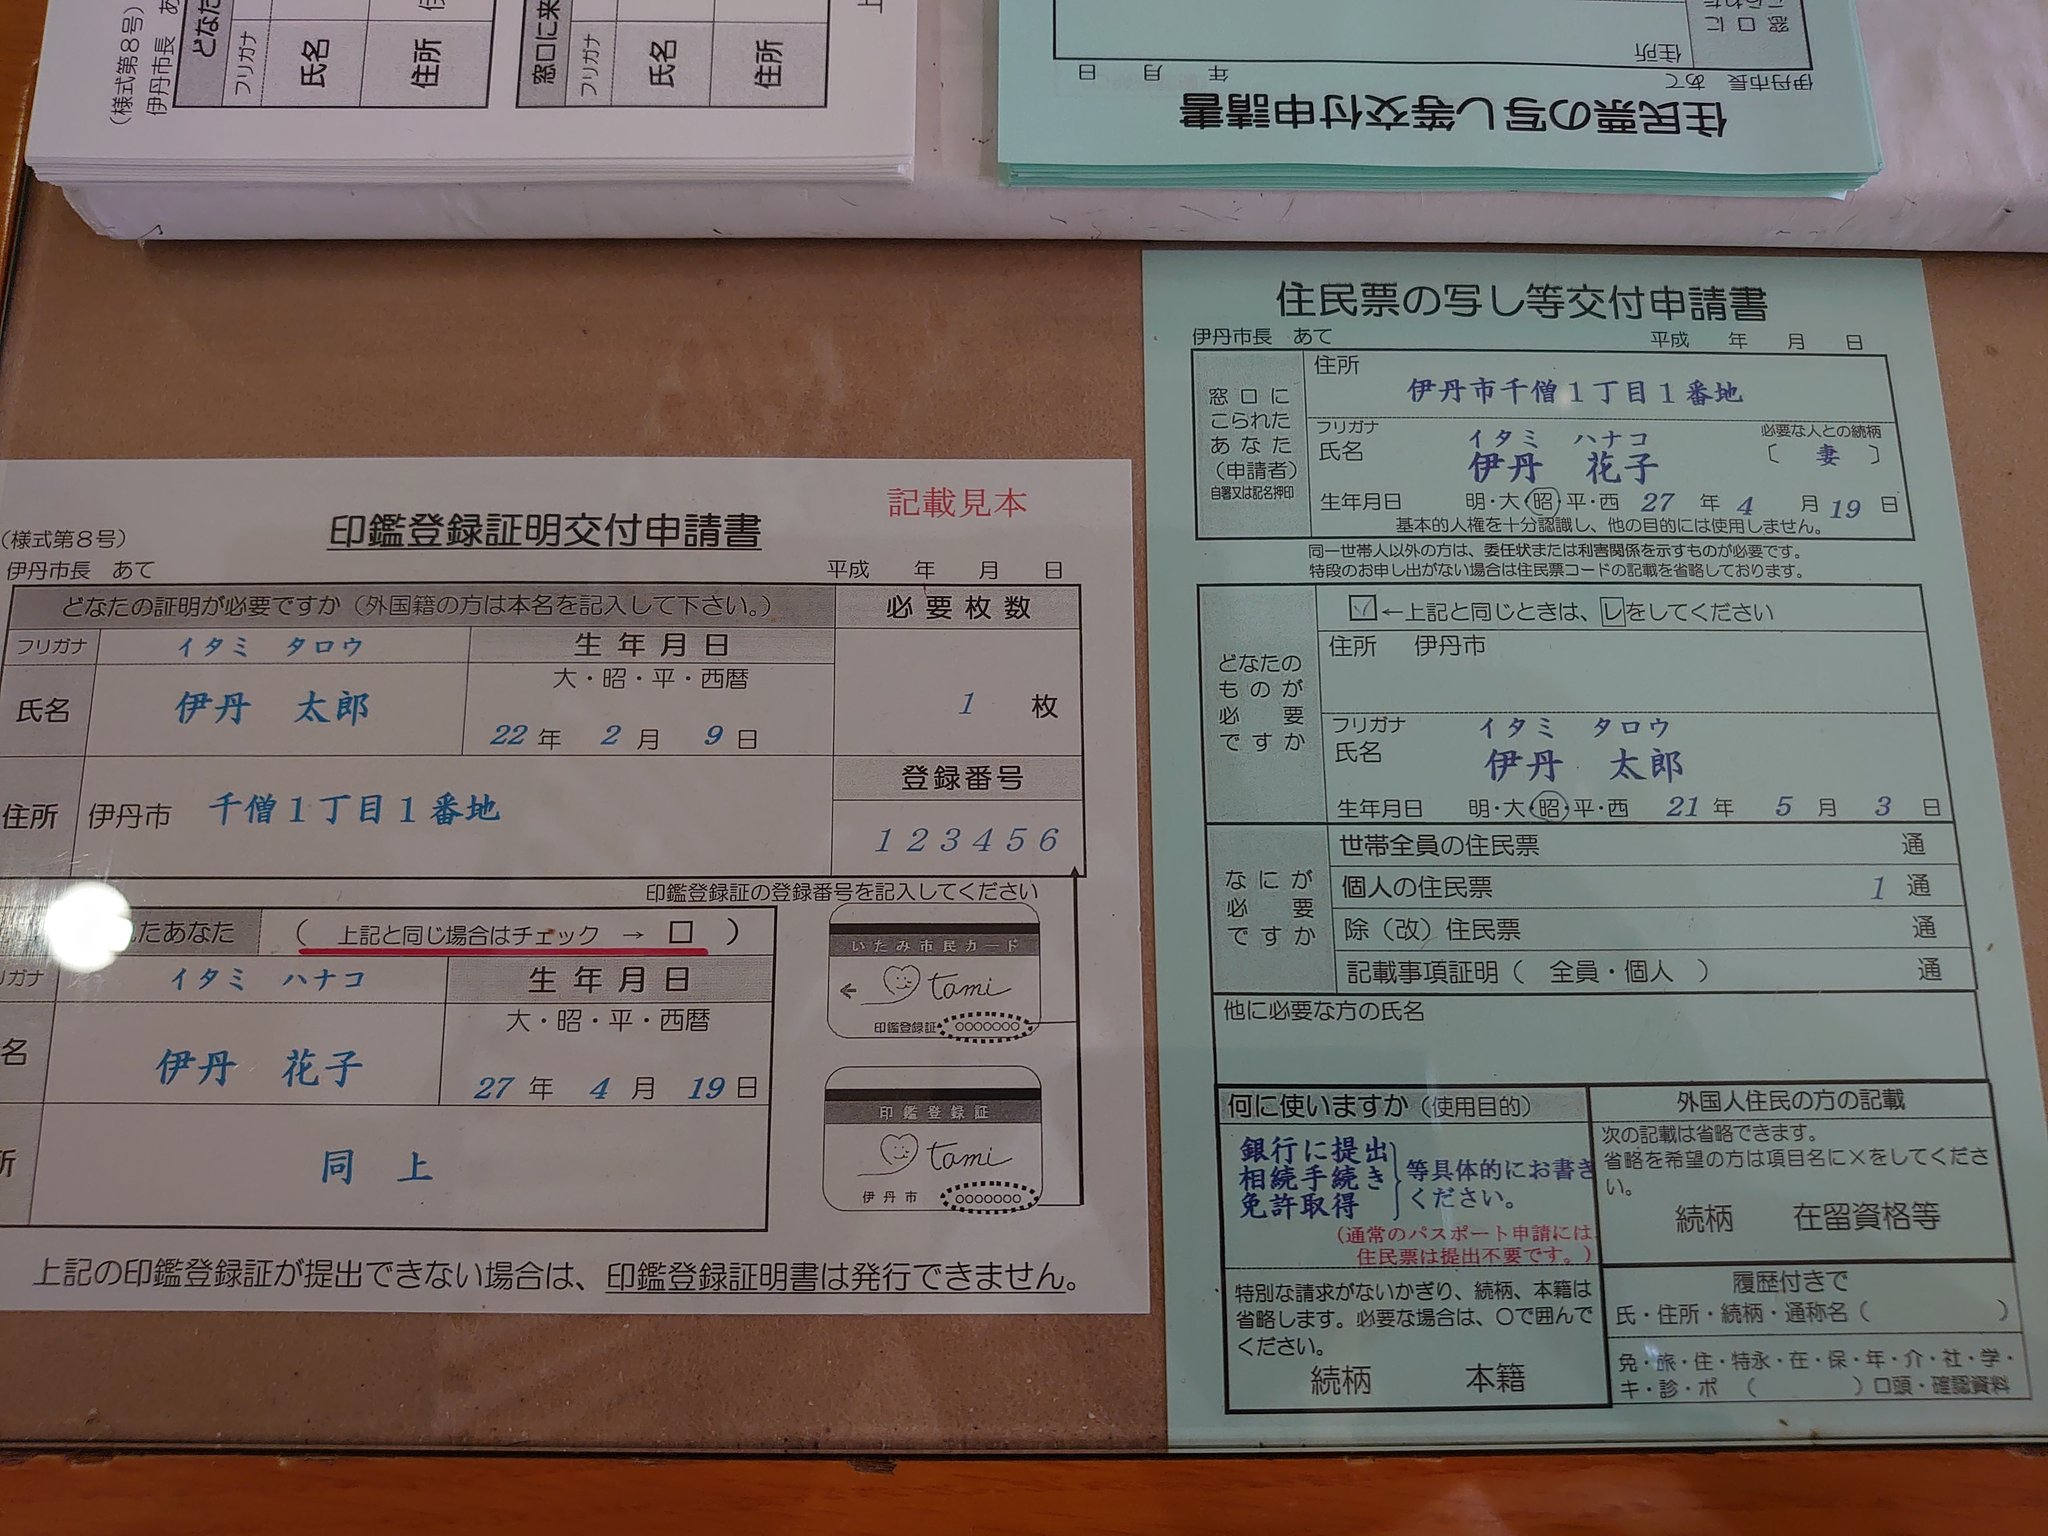 (様式第8号)
伊丹市長 あ
どなた
フリガナ
氏名
住所
窓口に来
フリガナ
氏名
住所
住民票の写し等交付申請書
伊丹市長 あて 年 月 日
住所
窓口に
記載見本
(様式第8号) 印鑑登録証明交付申請書
伊丹市長 あて 平成 年 月 日
どなたの証明が必要ですか(外国籍の方は本名を記入して下さい。) 必要枚数
フリガナ イタミ タロウ 生年月日
大・昭・平・西暦
氏名 伊丹 太郎 22年 2月 9日 1 枚
登録番号
住所 伊丹市 千僧1丁目1番地
123456
印鑑登録証の登録番号を記入してください
れたあなた (上記と同じ場合はチェック → □)
リガナ イタミ ハナコ 生年月日
大・昭・平・西暦
名 伊丹 花子 27年 4月 19日
所 同 上
いたみ市民カード
← tami
印鑑登録証 ○○○○○○○
印鑑登録証
tami
伊丹市 ○○○○○○○
上記の印鑑登録証が提出できない場合は、印鑑登録証明書は発行できません。
住民票の写し等交付申請書
伊丹市長 あて 平成 年 月 日
窓口に
こられた
あなた
(申請者)
自署又は記名押印
住所
伊丹市千僧1丁目1番地
フリガナ イタミ ハナコ 必要な人との続柄
氏名 伊丹 花子 〔 妻 〕
生年月日 明・大・昭・平・西 27年 4月 19日
基本的人権を十分認識し、他の目的には使用しません。
同一世帯人以外の方は、委任状または利害関係を示すものが必要です。
特段のお申し出がない場合は住民票コードの記載を省略しております。
どなたの
ものが
必要
ですか
☑←上記と同じときは、レをしてください
住所 伊丹市
フリガナ イタミ タロウ
氏名 伊丹 太郎
生年月日 明・大・昭・平・西 21年 5月 3日
なにが
必要
ですか
世帯全員の住民票 通
個人の住民票 1通
除(改)住民票 通
記載事項証明( 全員・個人 ) 通
他に必要な方の氏名
何に使いますか(使用目的)
銀行に提出
相続手続き
免許取得
等具体的にお書き
ください。
(通常のパスポート申請には、
住民票は提出不要です。)
特別な請求がないかぎり、続柄、本籍は
省略します。必要な場合は、○で囲んで
ください。
続柄 本籍
外国人住民の方の記載
次の記載は省略できます。
省略を希望の方は項目名に×をしてくださ
い。
続柄 在留資格等
履歴付きで
氏・住所・続柄・通称名( )
免・旅・住・特永・在・保・年・介・社・学・
キ・診・ポ ( )口頭・確認資料